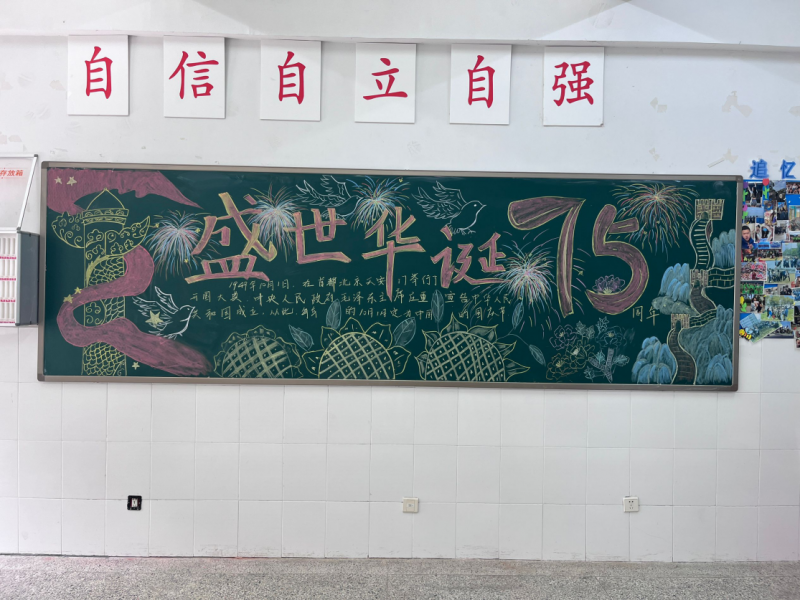 自信自立自强
存放箱
追忆
盛世华诞75
周年
1949年10月1日，在首都北京天安门举行
开国大典，中央人民政府毛泽东主席庄重宣告中华人民
共和国成立，从此每年的10月1日定为中国人的国庆节